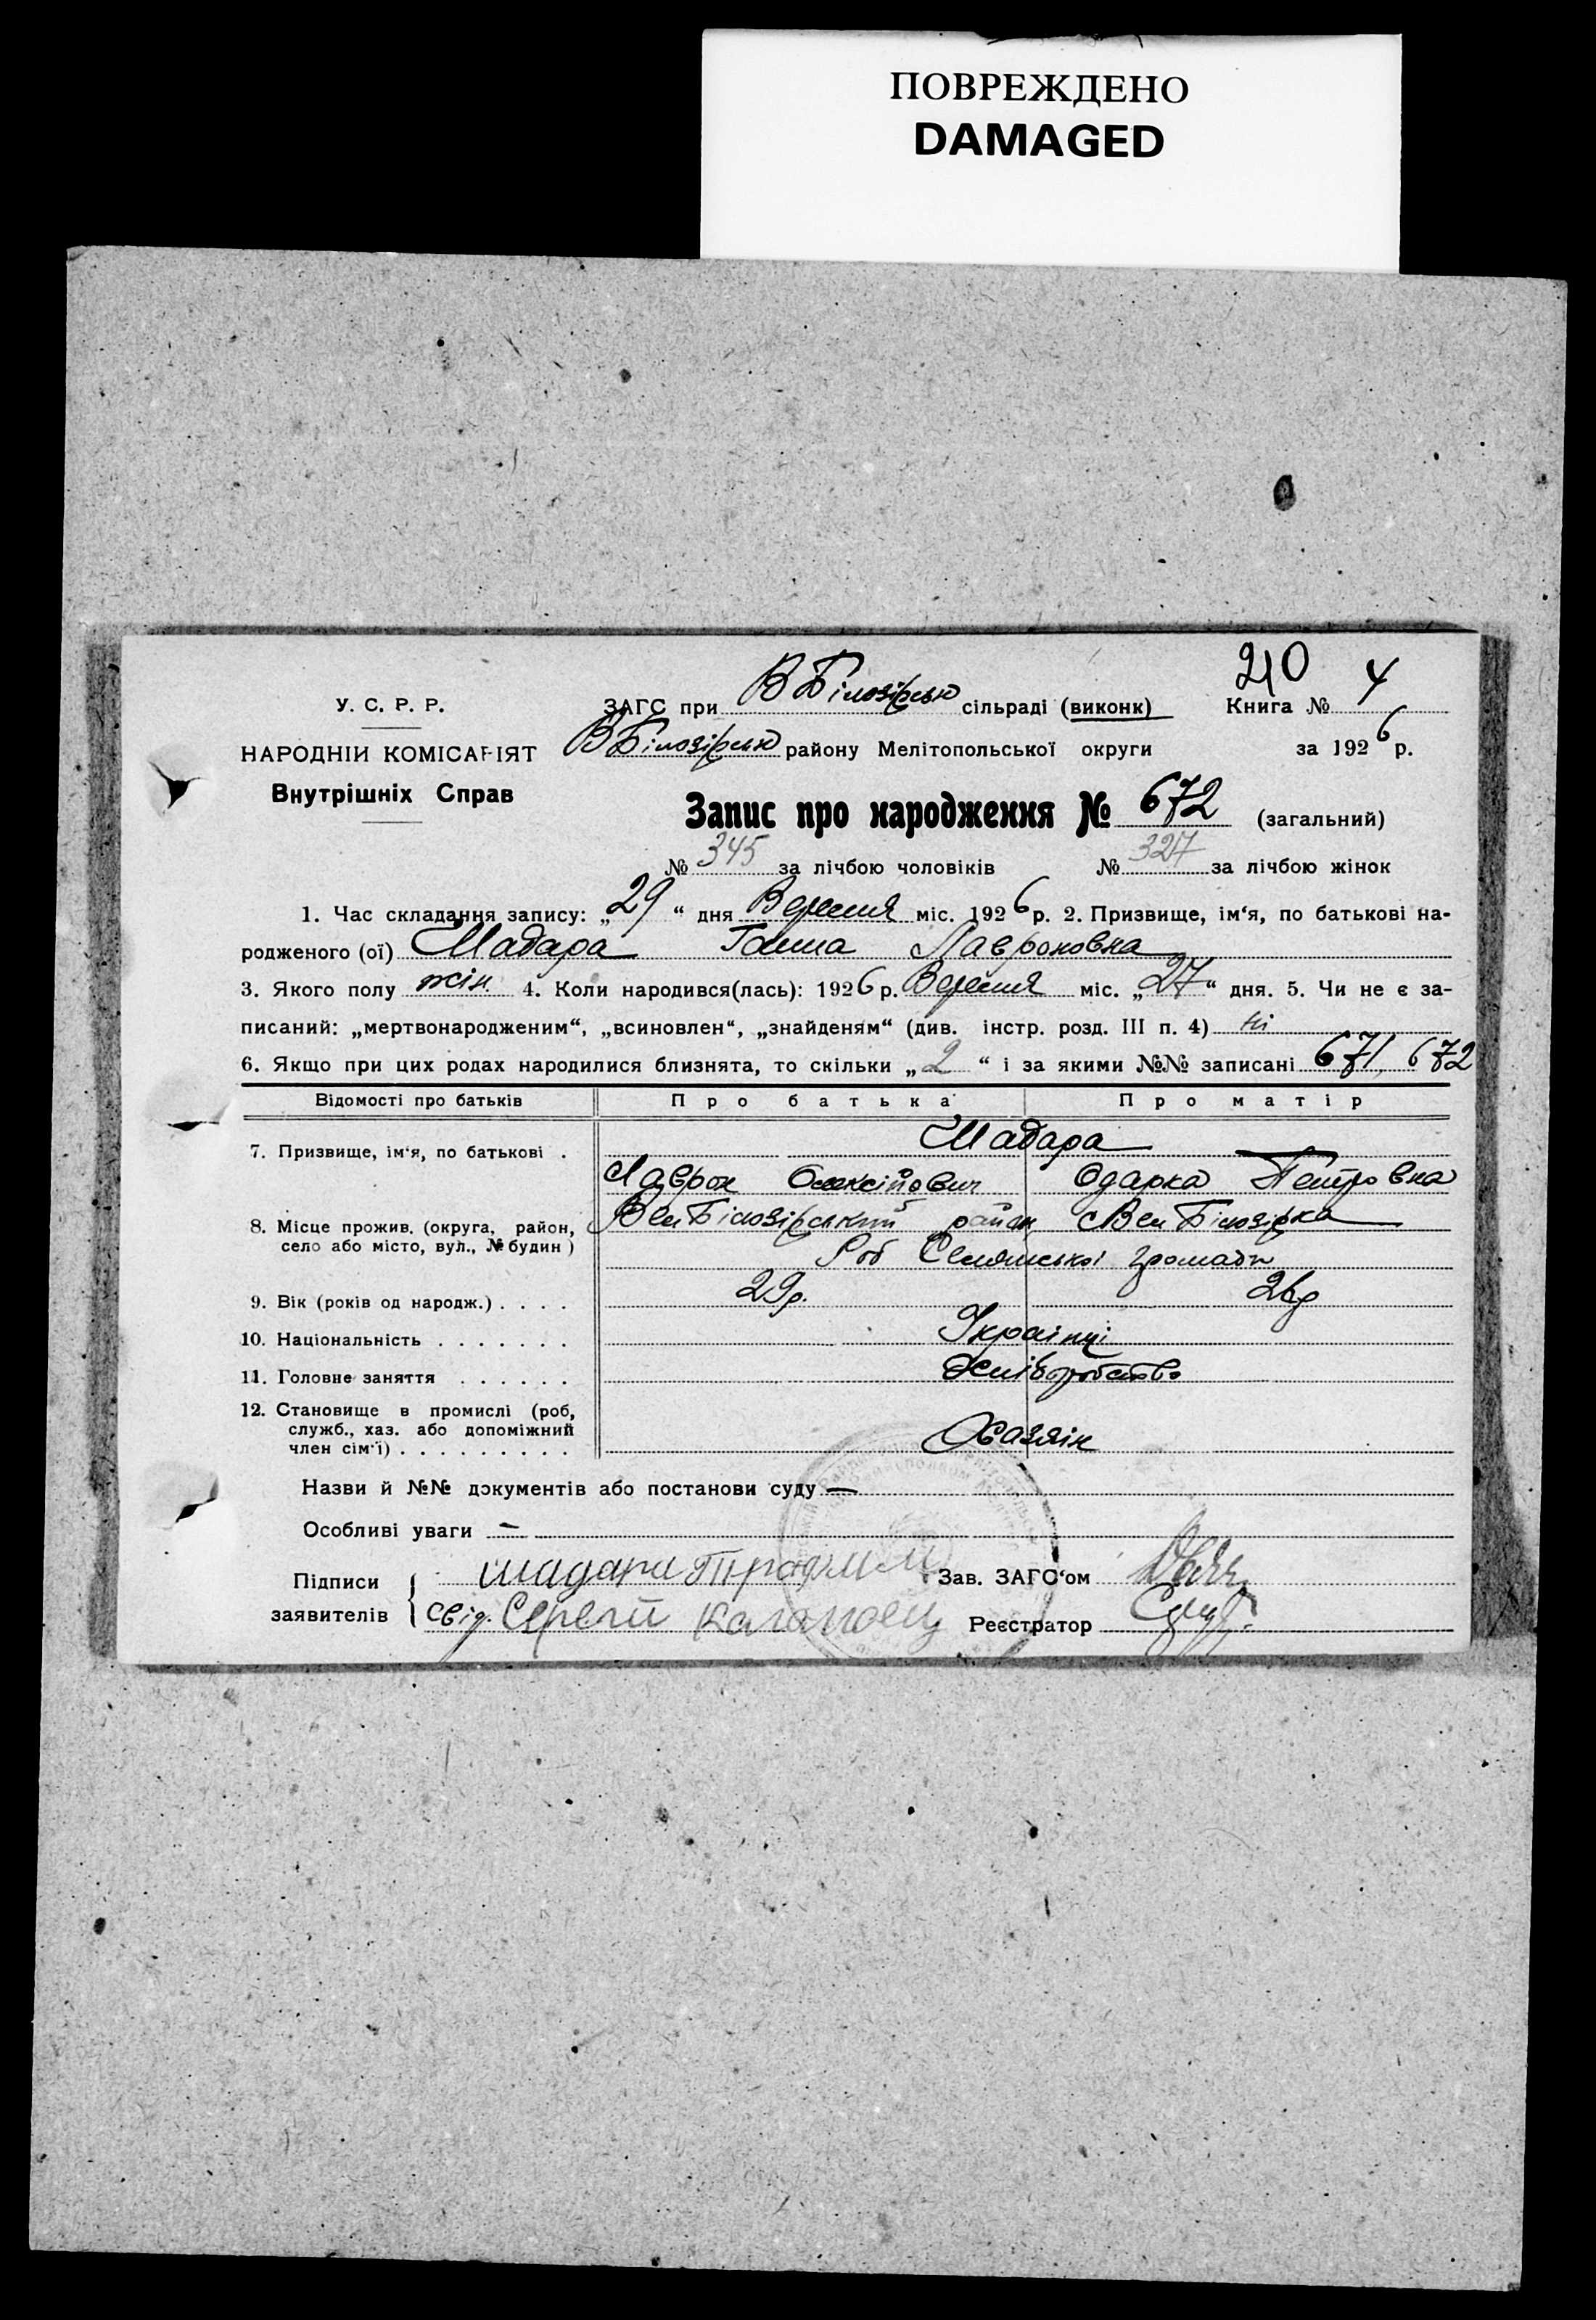 ПОВРЕЖДЕНО
DAMAGED
210
У. С. Р. Р.
ЗАГС при В Білозірськ сільраді (виконк) Книга № 4
НАРОДНІЙ КОМІСАРІЯТ
В Білозірськ району Мелітопольської округи за 1926 р.
Внутрішніх Справ
Запис про народження № 672 (загальний)
№ 345 за лічбою чоловіків № 327 за лічбою жінок
1. Час складання запису: „29“ дня Вересня міс. 1926 р. 2. Призвище, ім‘я, по батькові на-
родженого (ої) Шадара Ганна Лавроновна
3. Якого полу жін. 4. Коли народився(лась): 1926 р. Вересня міс. „27“ дня. 5. Чи не є за-
писаний: „мертвонародженим“, „всиновлен“, „знайденям“ (див. інстр. розд. III п. 4) Ні
6. Якщо при цих родах народилися близнята, то скільки „2“ і за якими №№ записані 671, 672
Відомості про батьків Про батька Про матір
7. Призвище, ім‘я, по батькові . Шадара
Лаврон Олексійович Одарка Петровна
8. Місце прожив. (округа, район, село або місто, вул., № будин) Вел Білозірський район с Вел Білозірка
громади
9. Вік (років од народж.) . . . . 29р. 26р
10. Національність . . . . . . . Українці
11. Головне заняття . . . . . . Хліборобство
12. Становище в промислі (роб, служб., хаз. або допоміжний член сім‘ї) . . . . . . . . . Хазяїн
Назви й №№ документів або постанови суду —
Особливі уваги —
Підписи заявителів { шадара
свід. Сергій
Зав. ЗАГС‘ом
Реєстратор